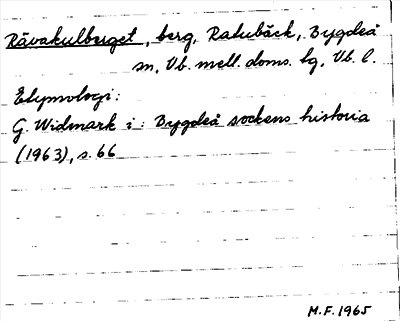 Råvakulberget, berg, Ratubäck, Bygdeå
sn, Vb. mell. doms. tg, Vb. l.
Etymologi:
G. Widmark i: Bygdeå sockens historia
(1963), s. 66
M.F. 1965